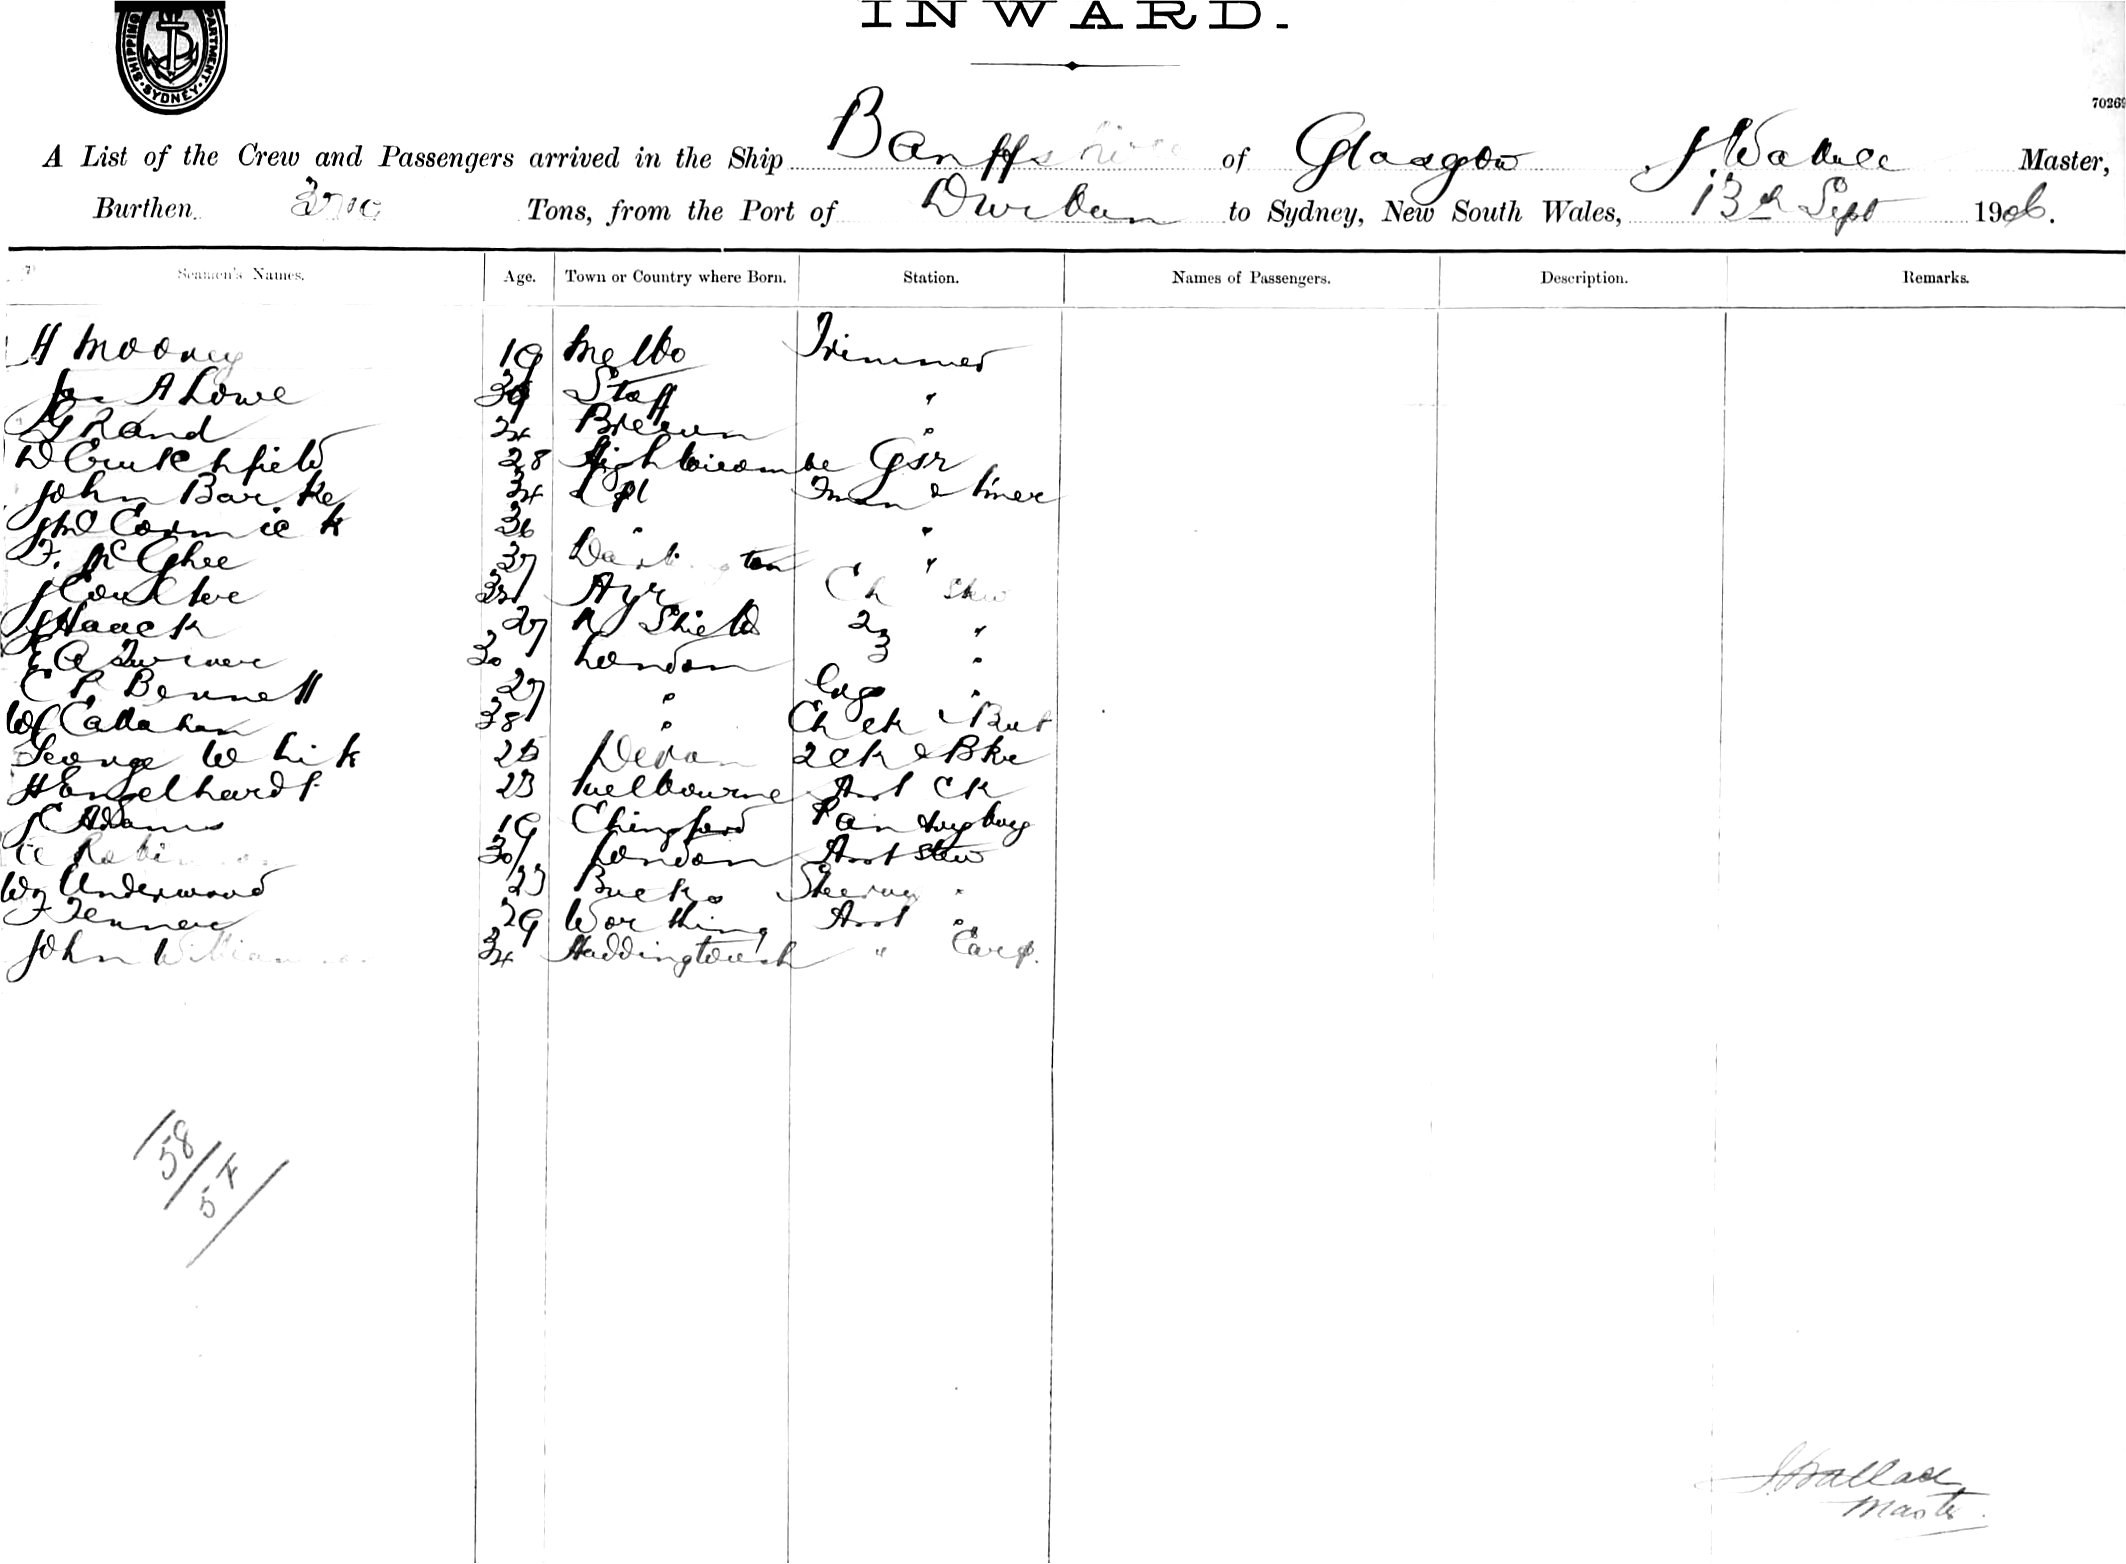 INWARD.
SHIPPING DEPARTMENT. SYDNEY.
70269
A List of the Crew and Passengers arrived in the Ship Banffshire of Glasgow J. Wallace Master,
Burthen Tons, from the Port of Durban to Sydney, New South Wales, 13th Sept 1906.
Seamen's Names. Age. Town or Country where Born. Station. Names of Passengers. Description. Remarks.
H Mooney 19 Melbo Trimmer
Jas A Lowe Staff "
G Rand 24 "
D Crutchfield 28 High Wicombe Gsr
John Barke 34 Lpl Fman & Trimer
J McCormick 36 " "
F. McGhee 37 "
J Coulter Ayr Ch Stw
J Haack 27 N Shields 2 "
E A Turner 30 London 3 "
C P. Bennett 27 " Eng "
W C Callahan 38 " Ch Ck & But
George Whik 25 Devon 2 Ck & Bkr
H Engelhardt 23 Melbourne Asst Ck
J C Adams 19 Chingford Pantryboy
30 London Asst Stw
Wm Underwood 23 Bucks Steerage "
F Fenner 29 Worthing Asst "
John 34 " Carp.
58
57
J Wallace
Master